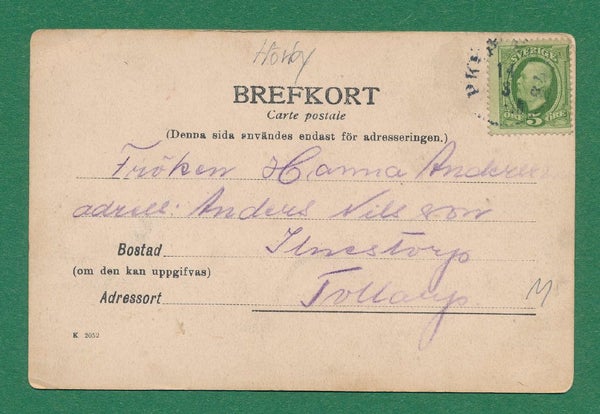 Hörby
BREFKORT
Carte postale
(Denna sida användes endast för adresseringen.)
SVERIGE
5
ÖRE
Fröken Hanna Anderson
adress: Anders Nilsson
Bostad
(om den kan uppgifvas)
Adressort Tollarp
M
K 2052